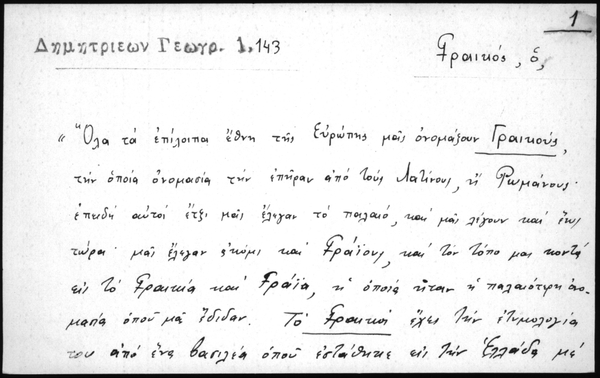 1
Δημητριεων Γεωγρ. 1,143
Γραικός, ὁ,
« Ὅλα τά ἐπίλοιπα ἔθνη τῆς Εὐρώπης μᾶς ὀνομάζουν Γραικούς,
τήν ὁποία ὀνομασία τήν ἐπῆραν ἀπό τούς Λατίνους, ἤ Ῥωμάνους·
ἐπειδή αὐτοί ἔτζι μᾶς ἔλεγαν τό παλαιό, καί μᾶς λέγουν καί ἕως
τώρα· μᾶς ἔλεγαν ἀκόμι καί Γραίους, καί τόν τόπο μας κοντά
εἰς τό Γραικία καί Γραῖα, ἡ ὁποία ἦταν ἡ παλαιότερη ὀνο-
μασία ὁποῦ μᾶς ἔδιδαν. Τό Γραικοί ἔχει τήν ἐτυμολογία
του ἀπό ἕνα βασιλέα ὁποῦ ἐστάθηκε εἰς τήν Ἑλλάδα μέ